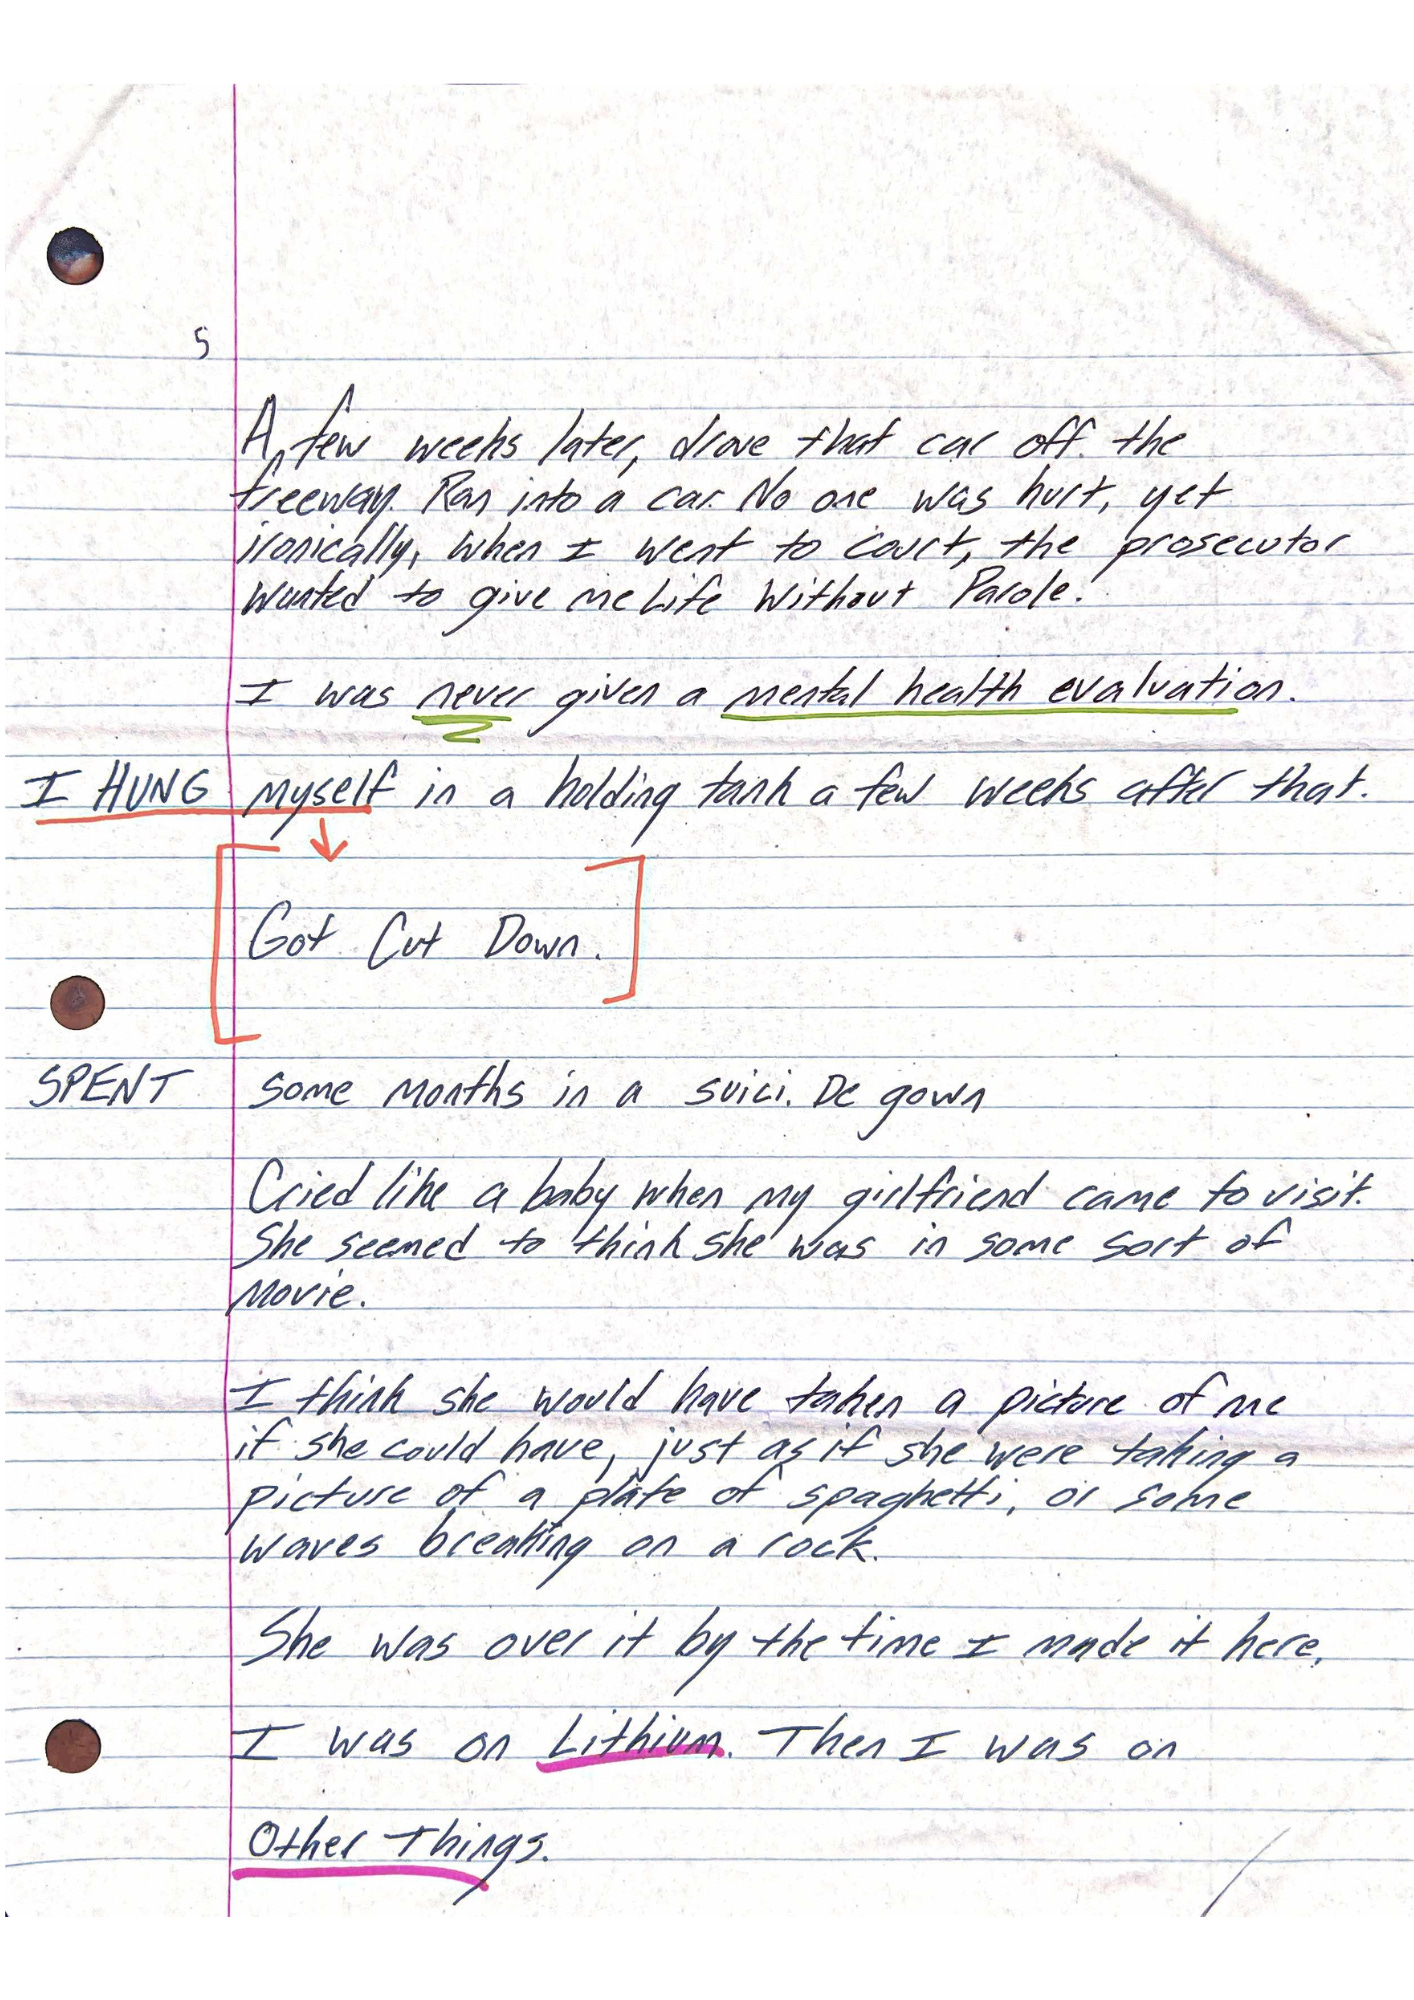 5
A few weeks later, drove that car off the
freeway. Ran into a car. No one was hurt, yet
ironically, when I went to court, the prosecutor
wanted to give me Life Without Parole.
I was never given a mental health evaluation.
I HUNG myself in a holding tank a few weeks after that.
Got Cut Down.
SPENT some months in a suici. De gown
Cried like a baby when my girlfriend came to visit.
She seemed to think she was in some sort of
Movie.
I think she would have taken a picture of me
if she could have, just as if she were taking a
picture of a plate of spaghetti, or some
waves breaking on a rock.
She was over it by the time I made it here.
I was on Lithium. Then I was on
Other Things.